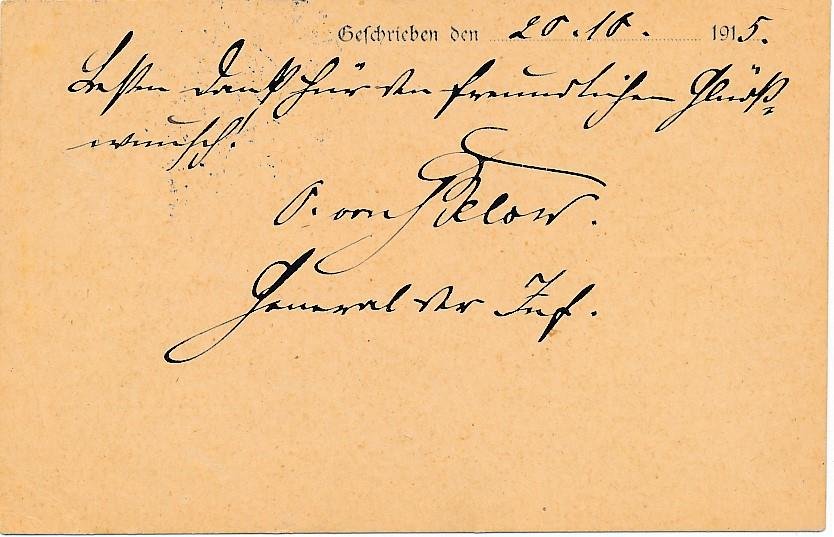 Geschrieben den 20.10. 1915.
Besten Dank für den freundlichen Glück-
wunsch!
O. von Below.
General der Inf.